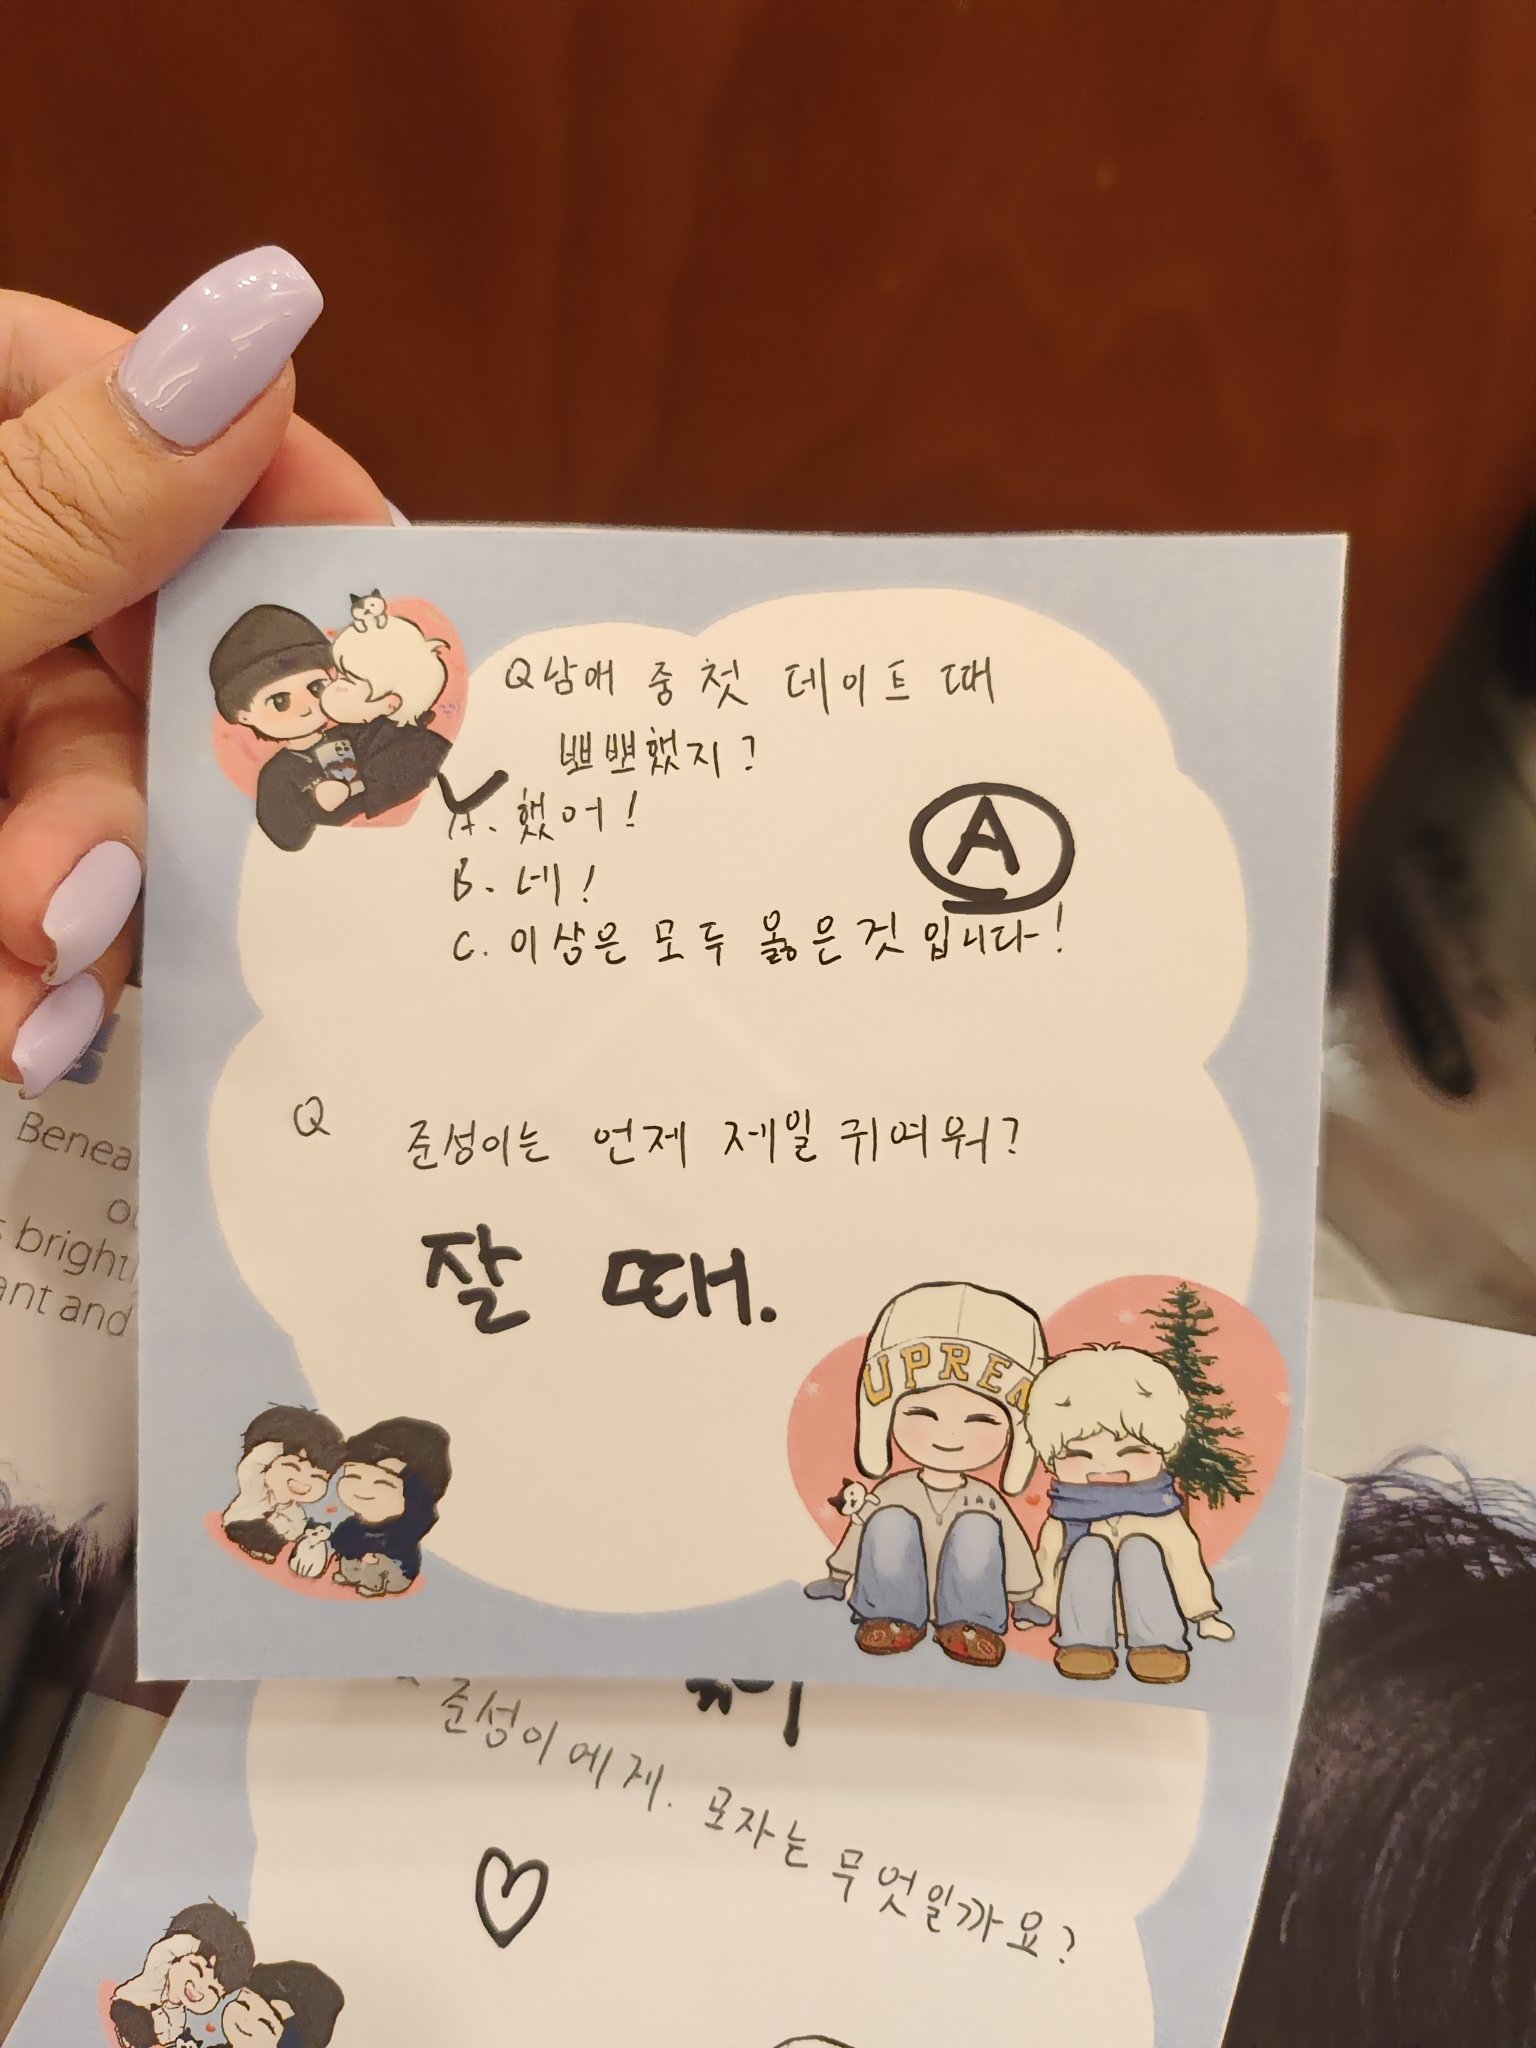 Q 남매 중 첫 데이트 때
뽀뽀했지?
A. 했어!
B. 네!
C. 이상은 모두 옳은 것 입니다!
A
Q 준성이는 언제 제일 귀여워?
잘 때.
UPREM
준성이에게. 모자는 무엇일까요?
Benea
brightl
ant and